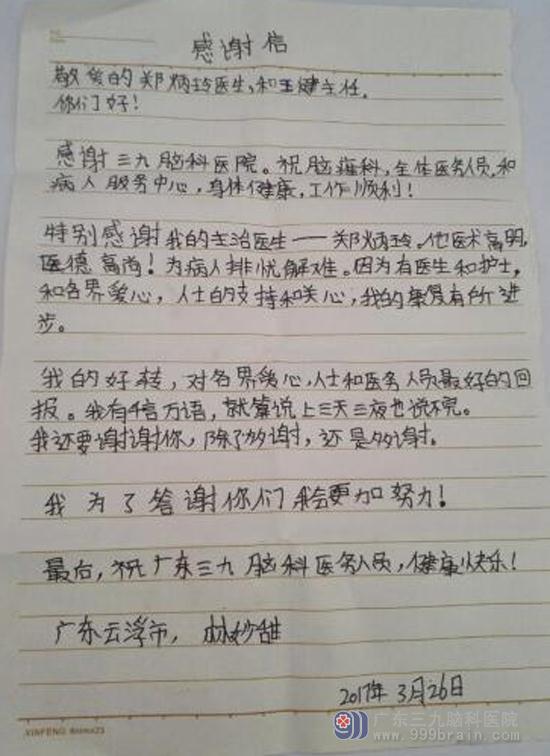 感谢信
敬爱的郑炳玲医生,和王健主任.
你们好!
感谢三九脑科医院。祝脑瘫科,全体医务人员,和
病人服务中心,身体健康,工作顺利!
特别感谢我的主治医生——郑炳玲。他医术高明,
医德高尚!为病人排忧解难。因为有医生和护士,
和各界爱心,人士的支持和关心,我的康复有所进
步。
我的好转,对各界爱心,人士和医务人员最好的回
报。我有千言万语,就算说上三天三夜也说不完。
我还要谢谢你,除了多谢,还是多谢。
我为了答谢你们我会更加努力!
最后,祝广东三九脑科医务人员,健康快乐!
广东云浮市,林妙甜
2017年3月26日
XINFENG
广东三九脑科医院
www.999brain.com